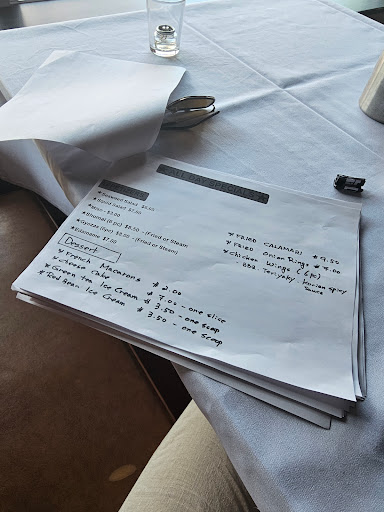 ★Seaweed Salad $6.50
★Squid Salad $7.50
★Miso - $3.00
★Shumai (6 pc) $6.50 - (Fried or Steam
★Gyoza (6pc) - (Fried or Steam)
★Edamame $7.00
Dessert
★ French Macarons $ 2.00
★ cheese cake $ 7.00 - one slice
★ Green tea Ice Cream $ 3.50 - one scoop
★ Red Bean Ice Cream $ 3.50 - one scoop
★ FRIED CALAMARI $ 9.50
★ FRIED Onion Rings $ 7.00
★ Chicken Wings (6pc)
BBQ Teriyaky Korian spicy
sauce